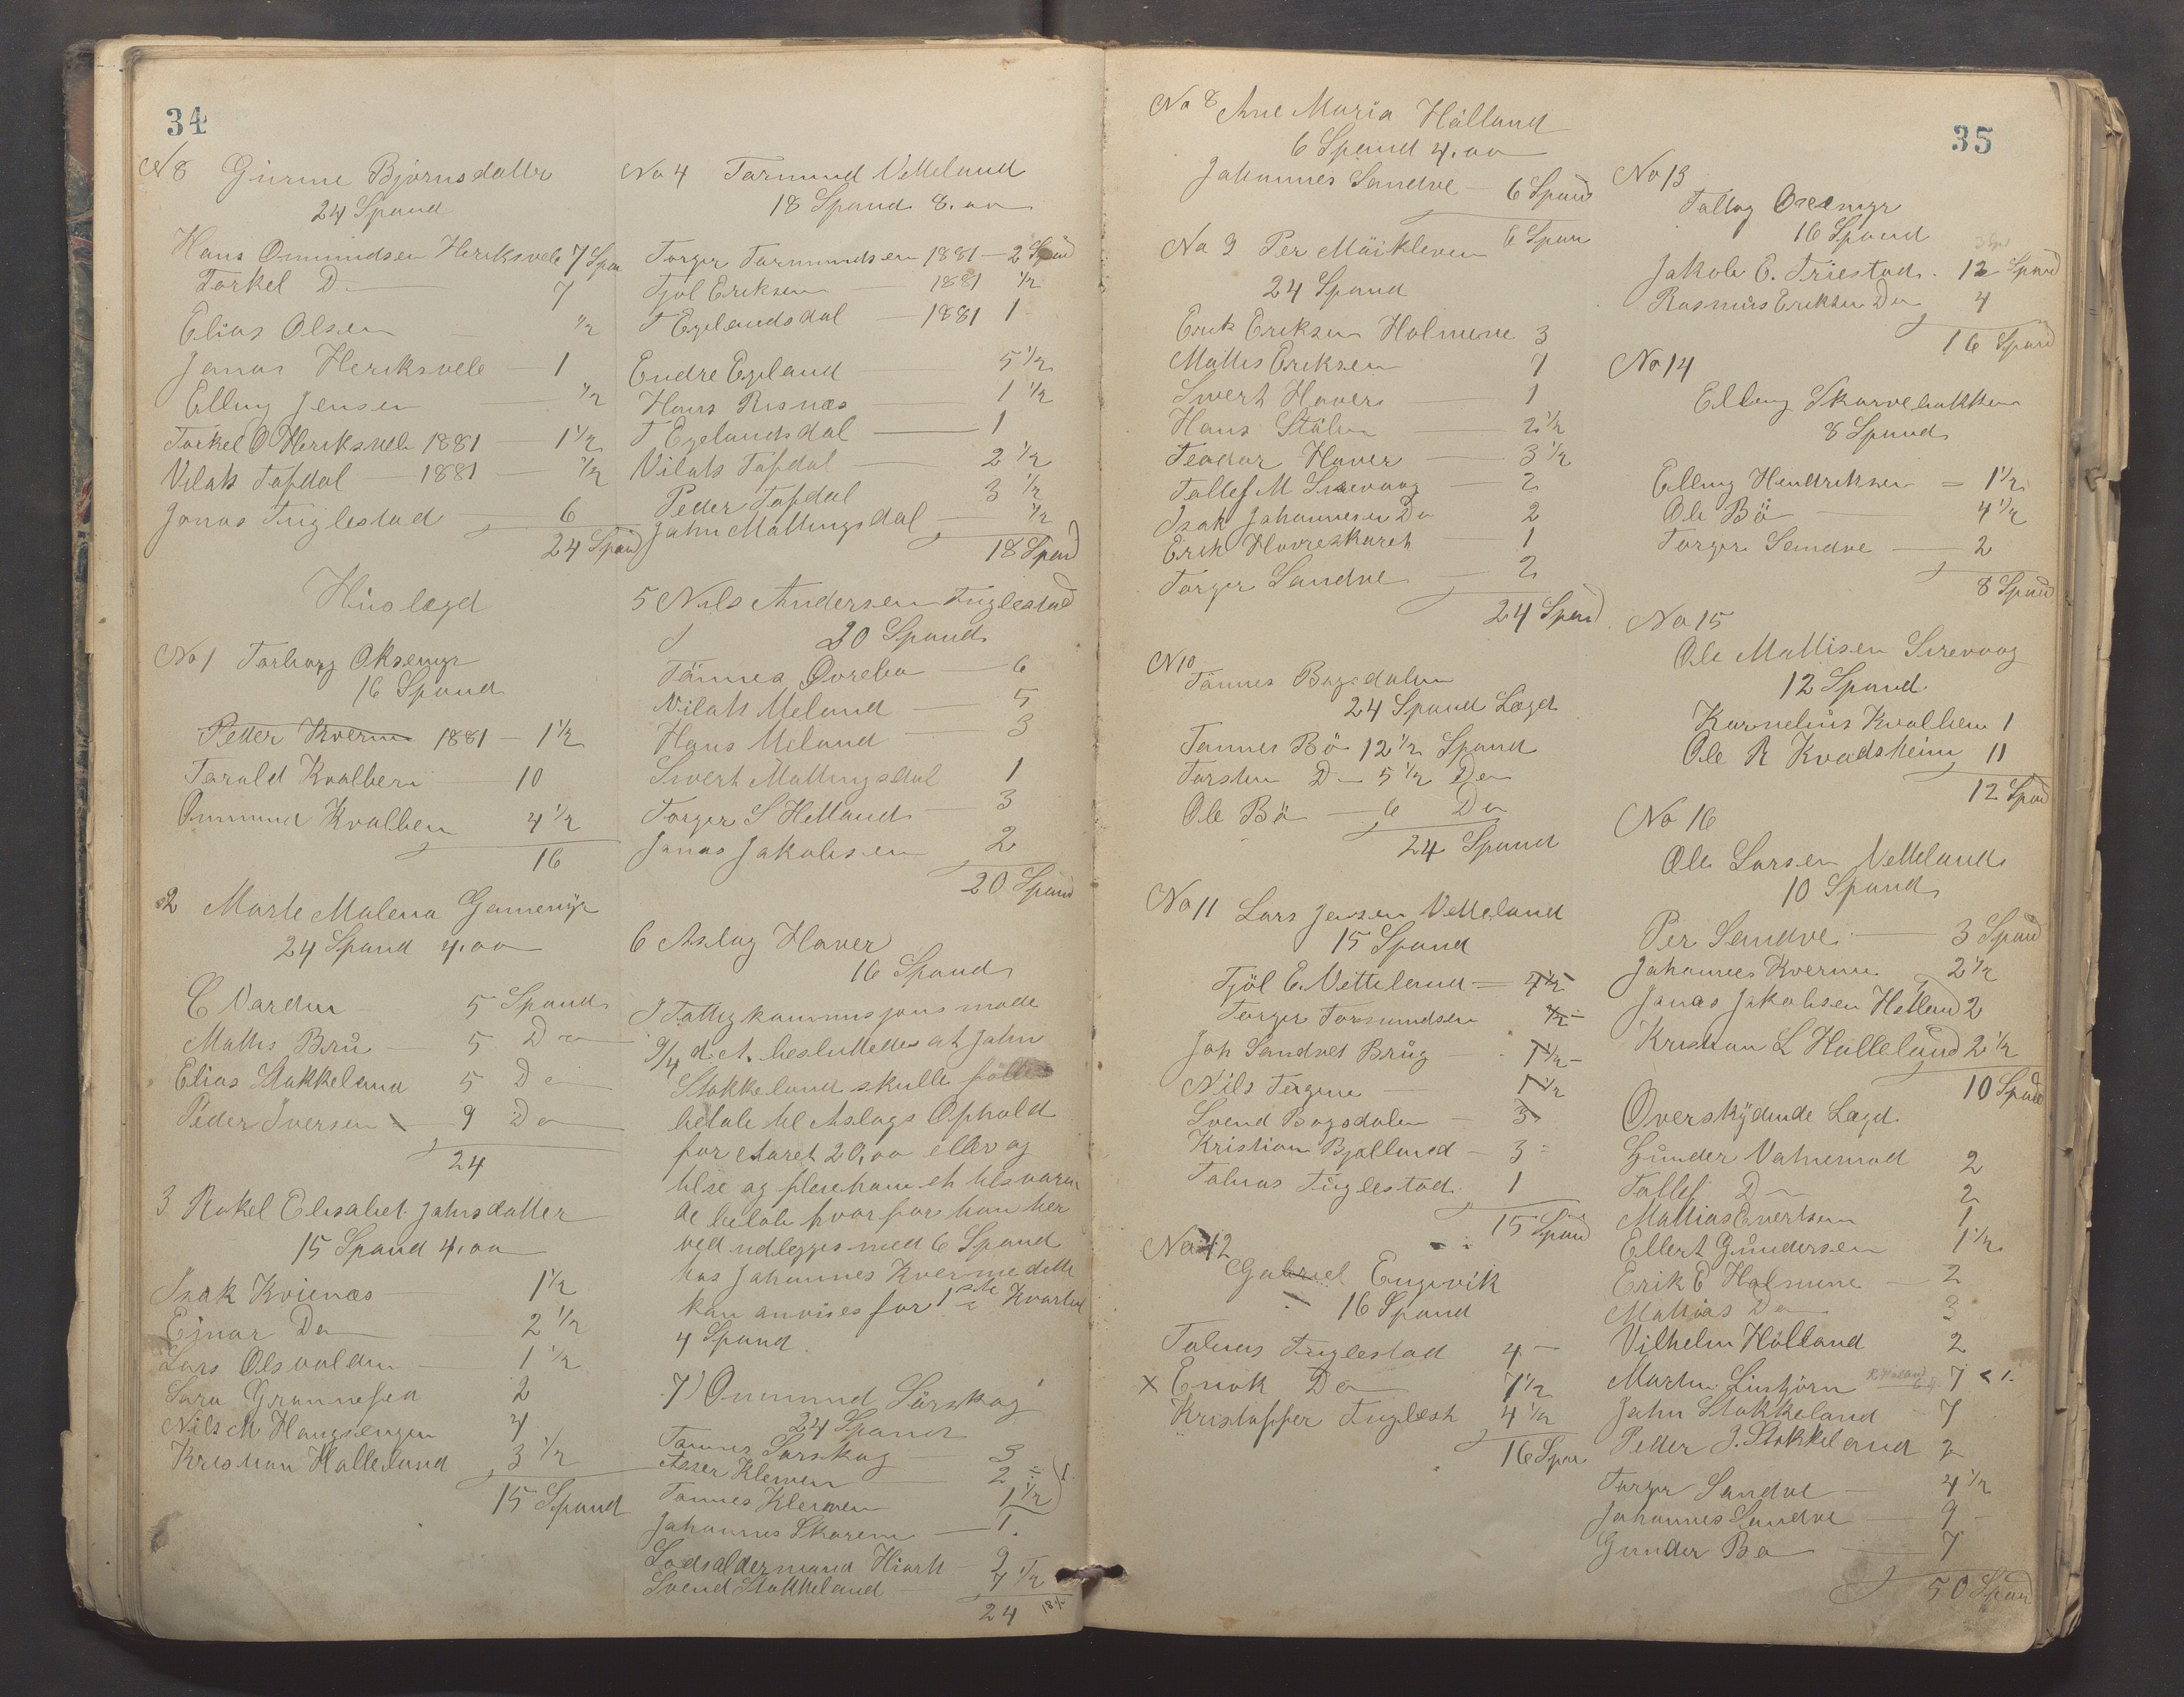 34
N 8 Gurine Bjørnsdatter
24 Spand
Hans Ommundsen Heriksvele 7 Span
Torkel D. 7
Elias Olsen ½
Jonas Heriksvele 1
Elling Jensen ½
Torkel O Heriksvele 1881 1½
Vilah Tofdal 1881 ½
Jonas Fuglestad 6
24 Spand
Huslægd
No 1 Torborg Oksemyr
16 Spand
Petter Kverme 1881 - 1½
Tarald Kvalben 10
Ommund Kvalben 4½
16
2 Marte Malena Gamemyr
24 Spand 4.00
C Varden 5 Spand
Mathis Brů 5 Do
Elias Stokkeland 5 Do
Peder Iversen 9 Do
24
3 Rakel Elisabet Jahnsdatter
15 Spand 4.00
Isak Kvienæs 1½
Ejnar Do 2½
Lars Olsvolden 1½
Sara Grønnefed 2
Nils M Haugsengen 4
Kristian Halleland 3½
15 Spand
No 4 Tormund Vetteland
18 Spand 8.00
Torger Tormundsen 1881 - 2 Spand
Tjøl Eriksen 1881 ½
T Egelandsdal 1881 1
Endre Egeland 5½
Hans Risnæs 1½
T Egelandsdal 1
Vilah Tofdal 2½
Peder Tofdal 3½
Jahn Mattingsdal ½
18 Spand
5 Nils Andersen Fuglestad
20 Spand
Tönnes Övrebø 6
Vilah Meland 5
Hans Meland 3
Sivert Mattingsdal 1
Torger S Hetland 3
Jonas Jakobsen 2
20 Spand
6 Aslag Haver
16 Spand
I Fattigkommisjons møde
9/4 d. A. besluttedes at Jahn
Stokkeland skulle
betale til Aslags Ophold
for Aaret 20,00 eller og
at tilsvaren
de beløb hvorfor han her
ved udlægges med 6 Spand
hos Johannes Kverme dette
kan anvises for 1ste Kvartal
4 Spand
7) Ommund Sörskog
24 Spand
Tönnes Sörskog 3
Asser Klemen 2
Tönnes Klemen 1½
Johannes Skarem 1.
Lodsaldermand Hiorth 9
Svend Stokkeland 7½
24 18½
No 8 Ane Maria Hålland
6 Spand 4.00
Johannes Sandve - 6 Spand
6 Span
No 9 Per Möikleven
24 Spand
Erik Eriksen Holmene 3
Mathis Eriksen 7
Sivert Haver 1
Hans Stölen 2½
Teodor Haver 3½
Tallef M Sirevaag 2
Isak Johannesen Do 2
Erik Hovreskaret 1
Torger Sandve 2
24 Spand
N 10
Tönnes Bogsdalen
24 Spand Lægd
Tønnes Bö 12½ Spand
Torsten D 5½ Do
Ole Bö 6 Do
24 Spand
No 11 Lars Jensen Vetteland
15 Spand
Tjöl E. Vetteland 4½
Torger Tormundsen ½
Joh Sandvet Brůg 1½
Nils Tengene 1½
Svend Bogsdalen 3
Kristian Bjølland 3
Tobias Fuglestad 1
15 Spand
No 12
Gabriel Engevik
16 Spand
Tobias Fuglestad 4
x Enok Do 7½
Kristoffer Fuglest 4½
16 Span
35
No 13
Tallag Oxemyr
16 Spand
Jakob E. Friestad 12 Spand
Rasmus Eriksen Do 4
16 Spand
No 14
Elling Skarvebakken
8 Spand
Elling Hendriksen 1½
Ole Bö 4½
Torger Sandve 2
8 Spand
No 15
Ole Mathisen Sirevaag
12 Spand
Kornelius Kvalben 1
Ole R Kvadsheim 11
12 Spand
No 16
Ole Larsen Vetteland
10 Spand
Per Sandve 3 Spand
Johannes Kverme 2½
Jonas Jakobsen Hetland 2
Kristian L Halleland 2½
10 Spand
Overskydende Lægd
Gunder Vatnemod 2
Tallef D 2
Mathias Evertsen 1
Ellert Gundersen 1½
Erik E Holmene 2
Mathias Do 3
Vilhelm Hålland 2
Martin Linbjörn 7
Jahn Stokkeland 7
Peder J. Stokkeland 2
Torger Sandve 4½
Johannes Sandve 9
Gunder Bø 7
50 Spand